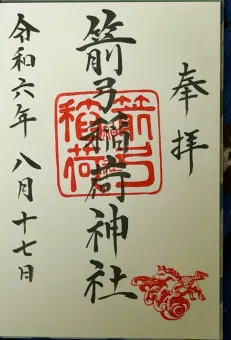 奉拝
箭弓稲荷神社
箭弓稲荷
令和六年 八月十七日